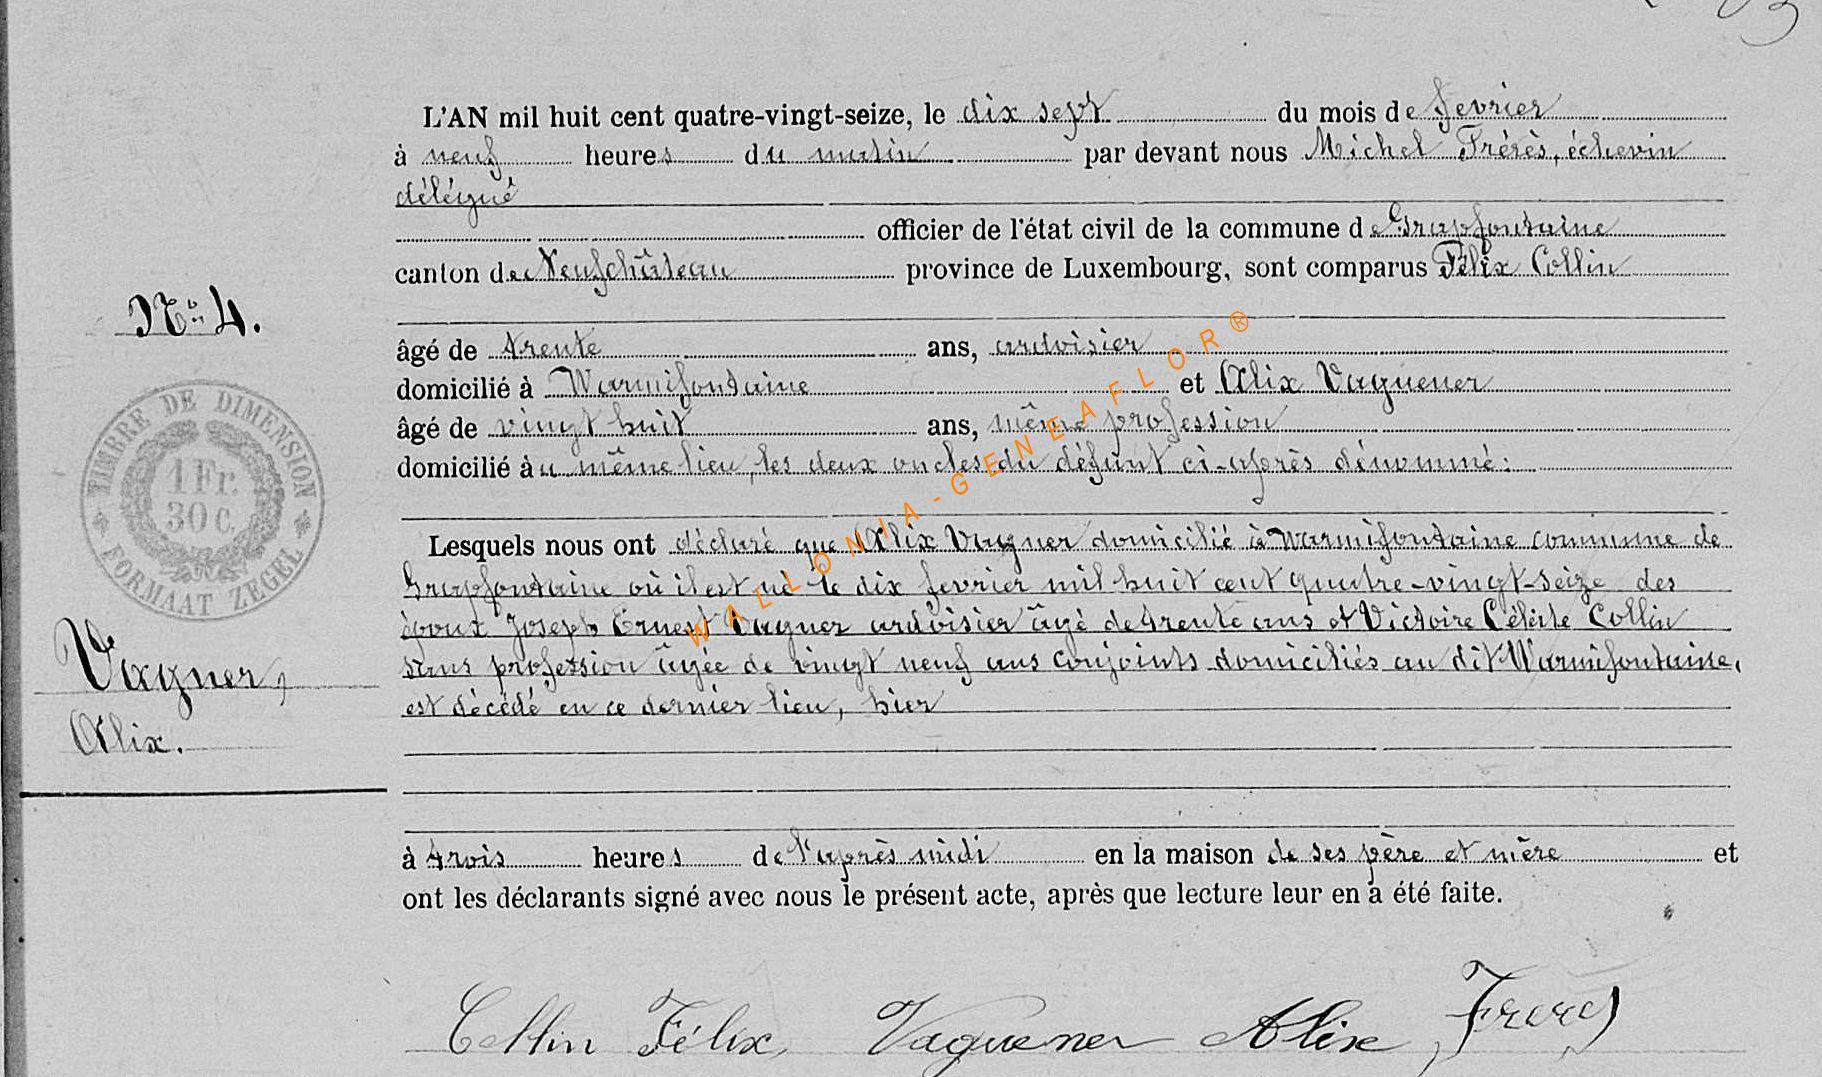 L'AN mil huit cent quatre-vingt-seize, le dix sept du mois de fevrier
à neuf heures du matin par devant nous Michel Frérès, échevin
délégué
officier de l'état civil de la commune de Grapfontaine
canton de Neufchâteau province de Luxembourg, sont comparus Félix Collin
No 4.
âgé de trente ans, ardoisier
domicilié à Warmifontaine et Alix Vaguener
âgé de vingt huit ans, même profession
domicilié au même lieu, les deux oncles du défunt ci-après dénommé:
TIMBRE DE DIMENSION
1 Fr.
30 c.
FORMAAT ZEGEL
WALLONIA-GENEAFLOR®
Lesquels nous ont déclaré que Alix Vagner domicilié à Warmifontaine commune de
Grapfontaine où il est né le dix fevrier mil huit cent quatre-vingt-seize des
époux Joseph Ernest Vagner ardoisier âgé de trente ans et Victoire Céleste Collin
sans profession âgée de vingt neuf ans conjoints domiciliés au dit Warmifontaine,
est décédé en ce dernier lieu, hier
Vagner,
Alix.
à trois heures de l'après midi en la maison de ses père et mère et
ont les déclarants signé avec nous le présent acte, après que lecture leur en a été faite.
Collin Félix, Vaguener Alix, Frerès